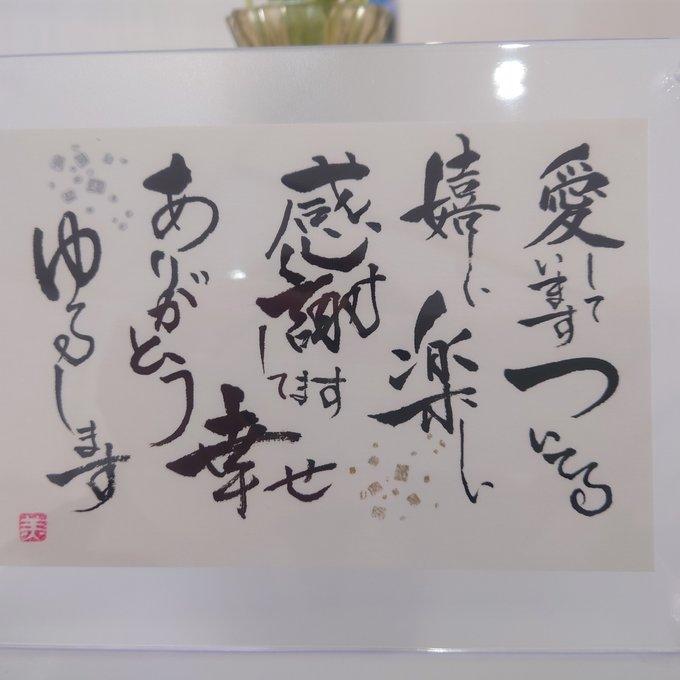 愛しています
ついてる
嬉しい
楽しい
感謝してます
幸せ
ありがとう
ゆるします
美